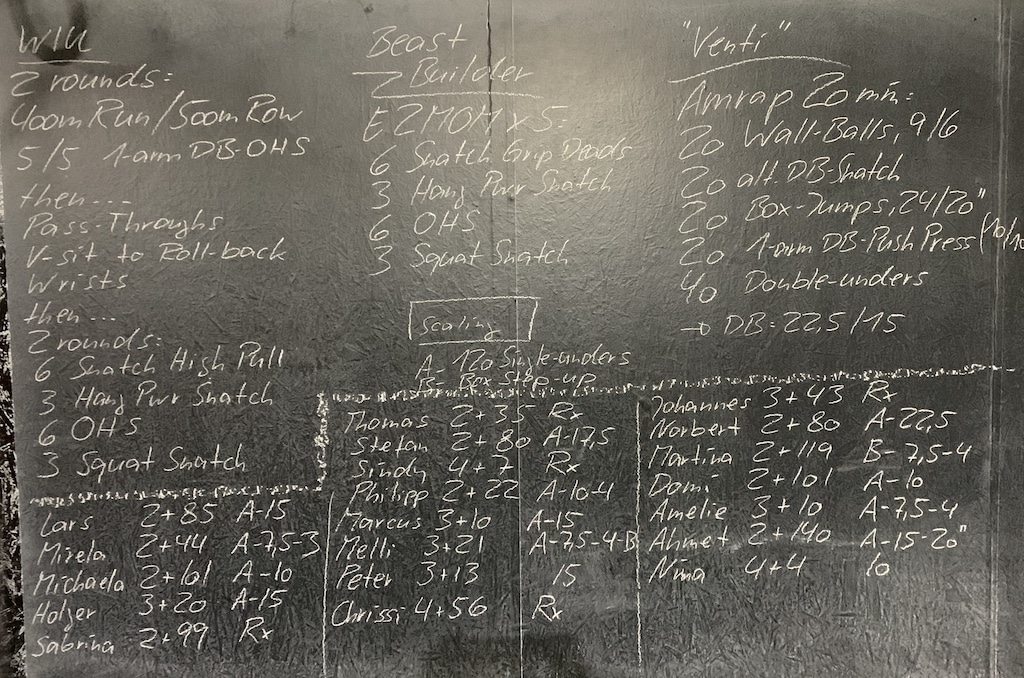 WIU
2 rounds:
400m Run/500m Row
5/5 1-arm DB-OHS
then...
Pass-Throughs
V-sit to Roll-back
Wrists
then...
2 rounds:
6 Snatch High Pull
3 Hang Pwr Snatch
6 OHS
3 Squat Snatch
Beast
Builder
E2MOM x 5:
6 Snatch Grip Deads
3 Hang Pwr Snatch
6 OHS
3 Squat Snatch
Scaling
A- 120 Single-unders
B- Box Step-up
"Venti"
Amrap 20 min:
20 Wall-Balls, 9/6
20 alt. DB-Snatch
20 Box-Jumps, 24/20"
20 1-arm DB-Push Press (10/10
40 Double-unders
→ DB = 22,5/15
Lars 2+85 A-15
Mirela 2+44 A-7,5-3
Michaela 2+101 A-10
Holger 3+20 A-15
Sabrina 2+99 Rx
Thomas 2+35 Rx
Stefan 2+80 A-17,5
Sindy 4+7 Rx
Philipp 2+22 A-10-4
Marcus 3+10 A-15
Melli 3+21 A-7,5-4-B
Peter 3+13 15
Chrissi 4+56 Rx
Johannes 3+43 Rx
Norbert 2+80 A-22,5
Martina 2+119 B-7,5-4
Domi 2+101 A-10
Amelie 3+10 A-7,5-4
Ahmet 2+140 A-15-20"
Nina 4+4 10